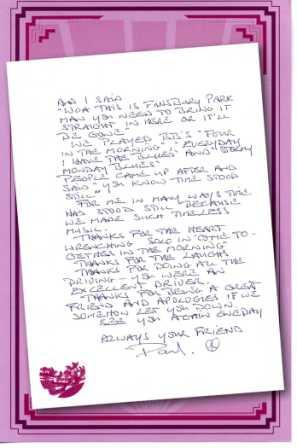 AND I SAID
"WOA THIS IS FINSBURY PARK
MAN YOU NEED TO BRING IT
STRAIGHT IN HERE OR IT'LL
BE GONE"
WE PLAYED BB'S "FOUR
IN THE MORNING", "EVERYDAY
I HAVE THE BLUES" AND "STORMY
MONDAY BLUES"
PEOPLE CAME UP AFTER AND
SAID "YOU KNOW TIME STOOD
STILL"
FOR ME IN MANY WAYS TIME
HAS STOOD STILL BECAUSE
WE MADE SUCH TIMELESS
MUSIC.
THANKS FOR THE HEART
WRENCHING SOLO IN "COME TO-
GETHER IN THE MORNING"
THANKS FOR THE LAUGHS
THANKS FOR DOING ALL THE
DRIVING - YOU WERE AN
EXCELLENT DRIVER.
THANKS FOR BEING A GREAT
FRIEND AND APOLOGIES IF WE
SOMEHOW LET YOU DOWN.
SEE YOU AGAIN ONE DAY
ALWAYS YOUR FRIEND
Paul.